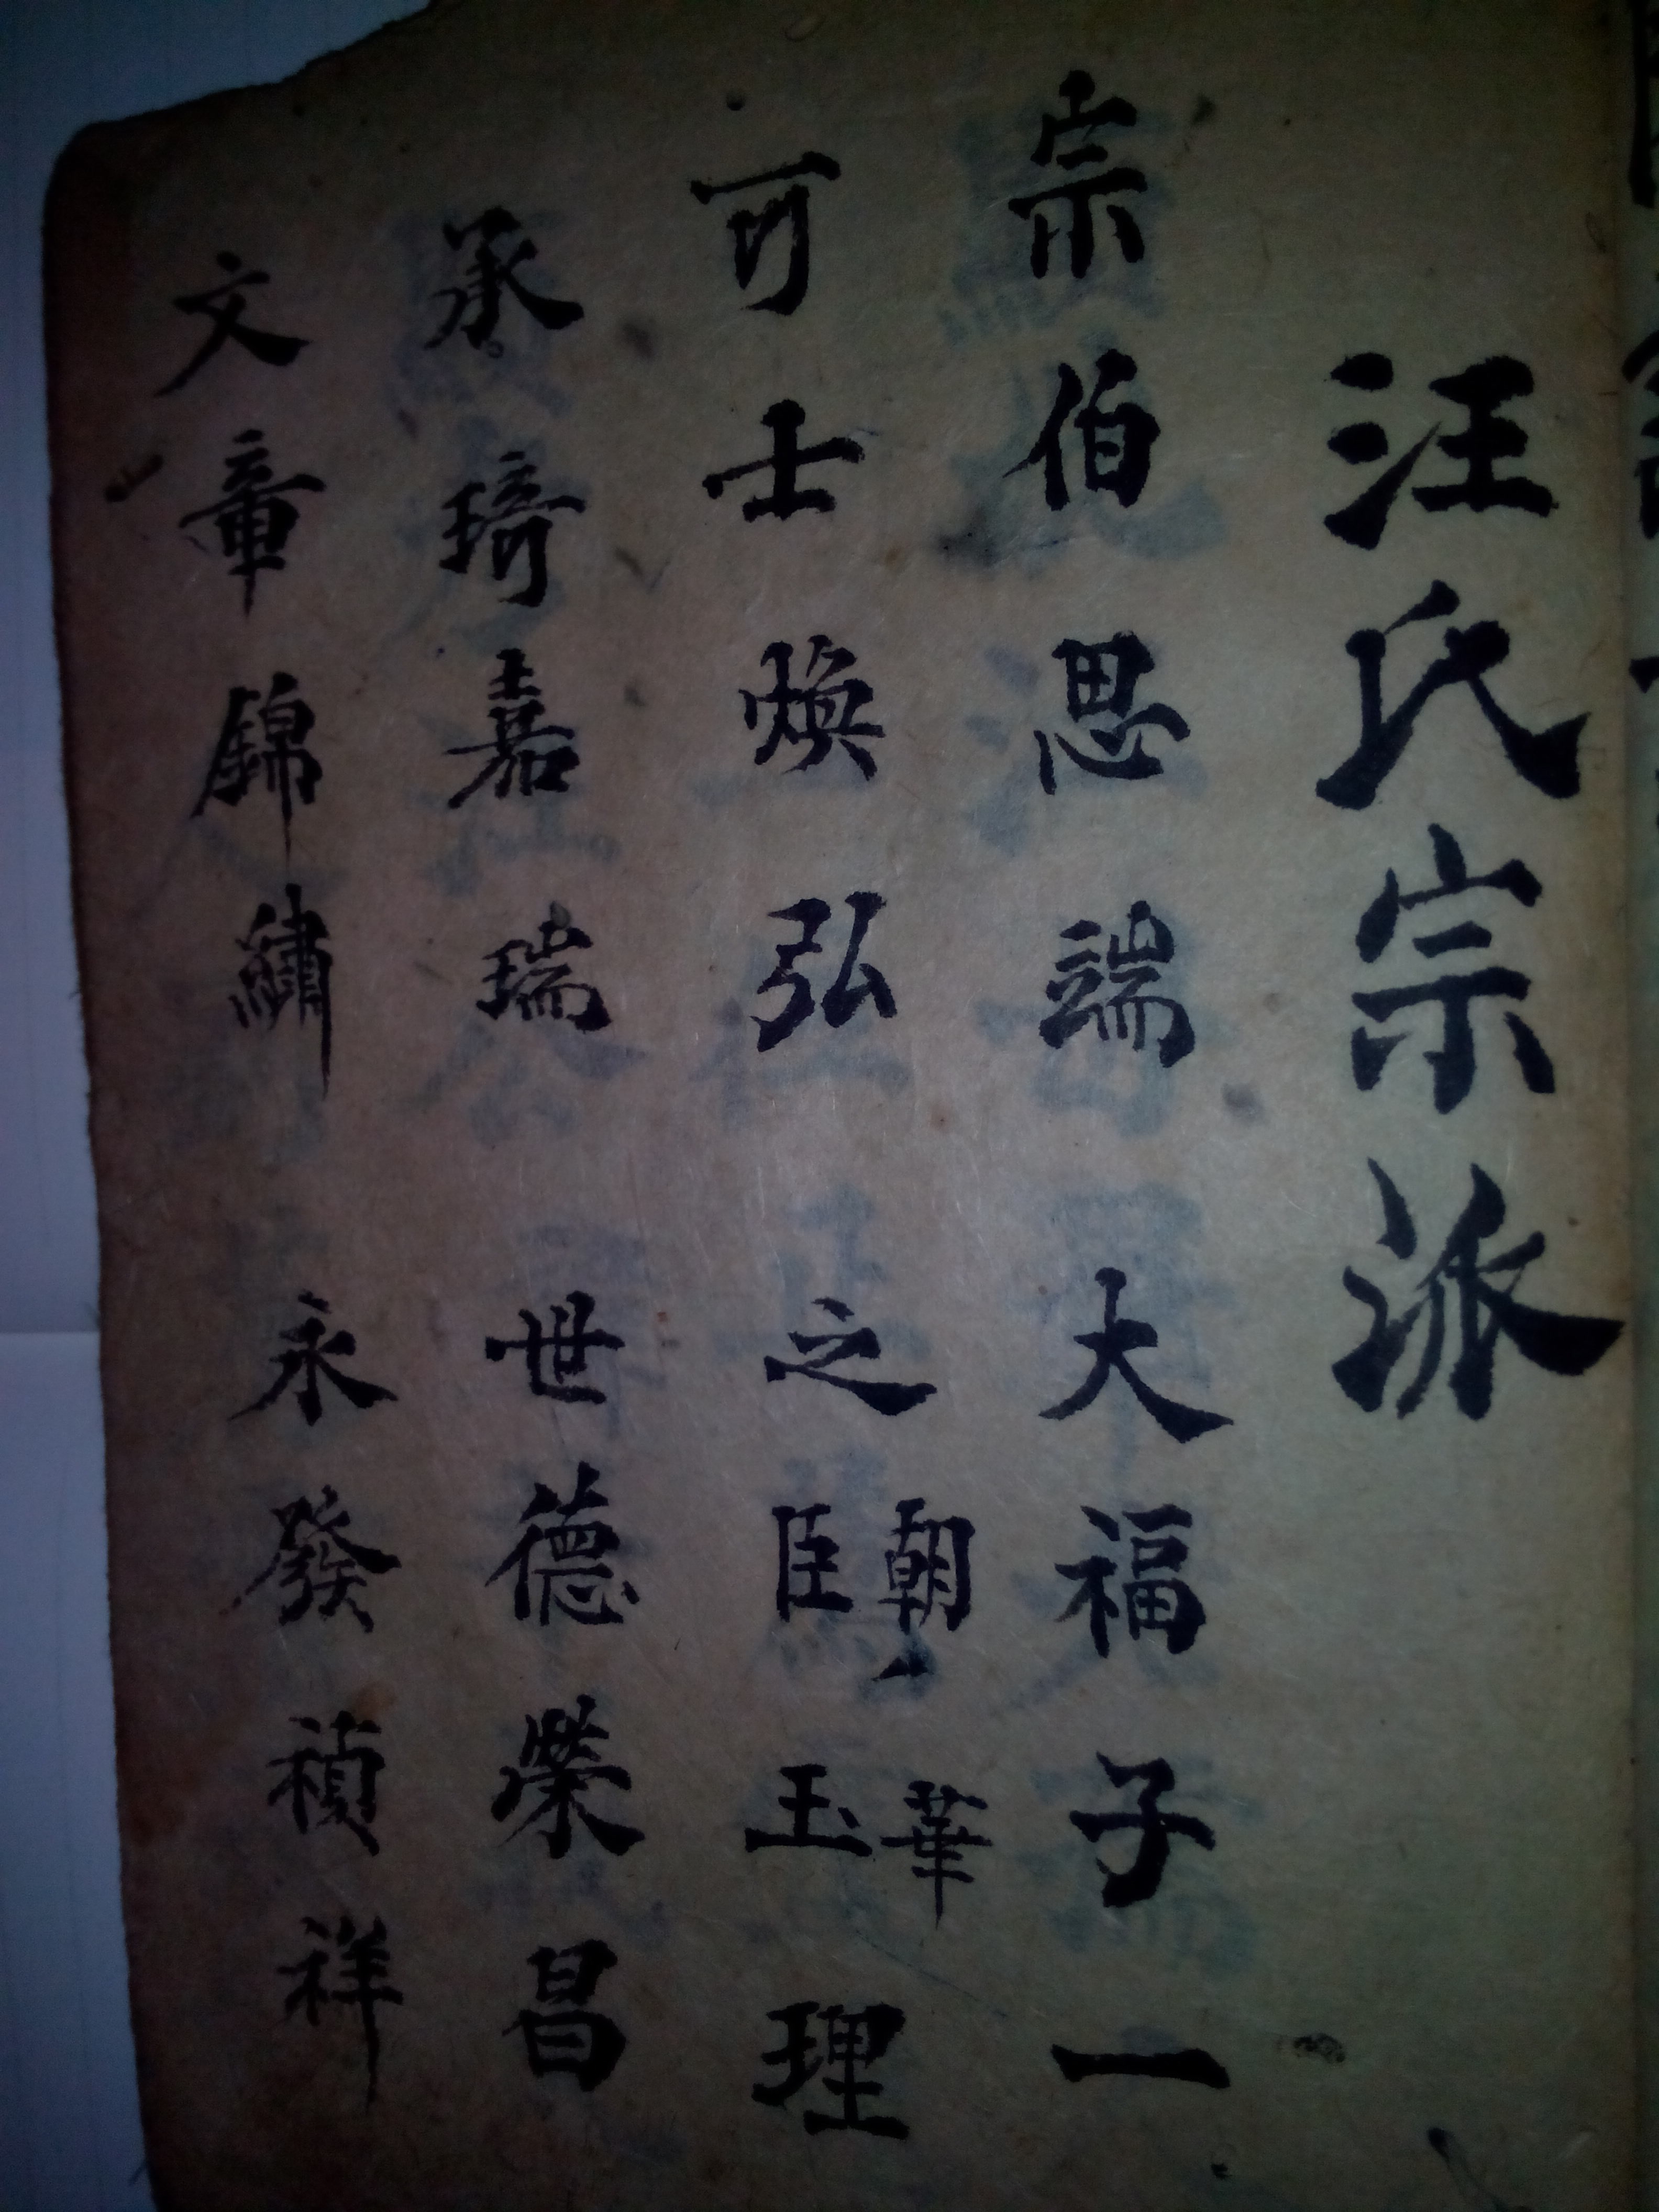 汪氏宗派
宗伯思端大福子一
可士煥弘之臣玉理
朝華
承琦嘉瑞世德榮昌
文章錦繡永發禎祥